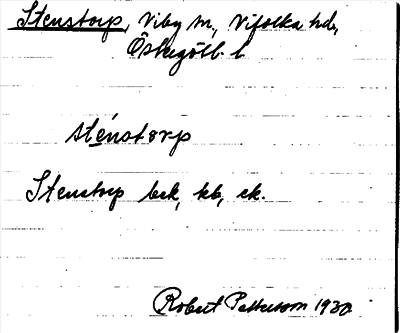 Stenstorp, Viby sn, Vifolka hd,
Östergötl. l
sténstorp
Stenstorp bek, kb, ek.
Robert Pettersson 1930